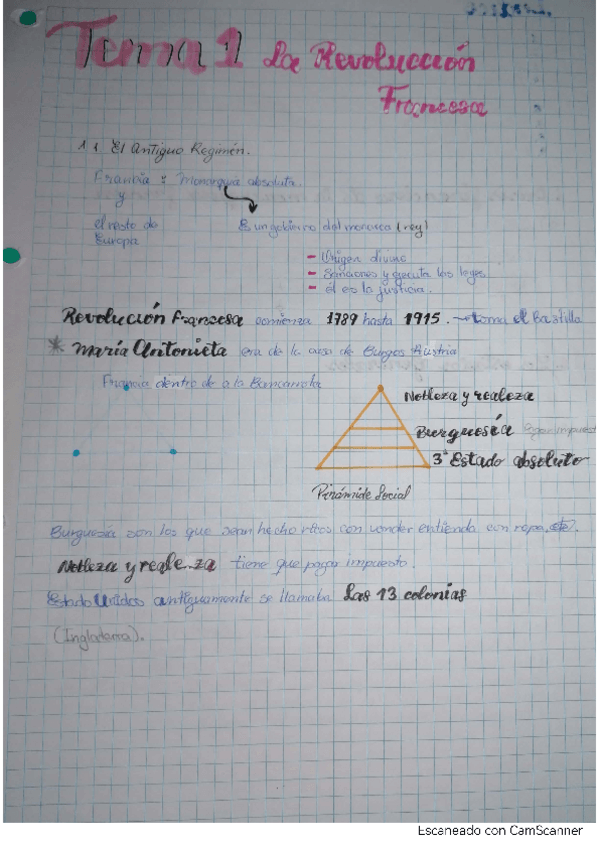 Tema 1 La Revolucción
Francesa
1.1. El Antiguo Regimén.
Francia : Monarquia absoluta.
y
el resto de
Europa
Es un gobierno del monarca (rey)
- Origen divino
- Sanciones y ejecuta las leyes
- él es la justicia.
Revolución Francesa comienza 1789 hasta 1915. → toma el Bastilla
* María Antonieta era de la casa de Burgos Austria
Francia dentro de a la Bancarrota
Nobleza y realeza
Burguesía
3º Estado absoluto
Pirámide Social
Burguesía son los que sean hecho ricos con vender en tienda con ropa, etc).
Nobleza y realeza tiene que pagar impuesto.
Estado Unidos antiguamente se llamaba Las 13 colonias
(Inglaterra).
Escaneado con CamScanner